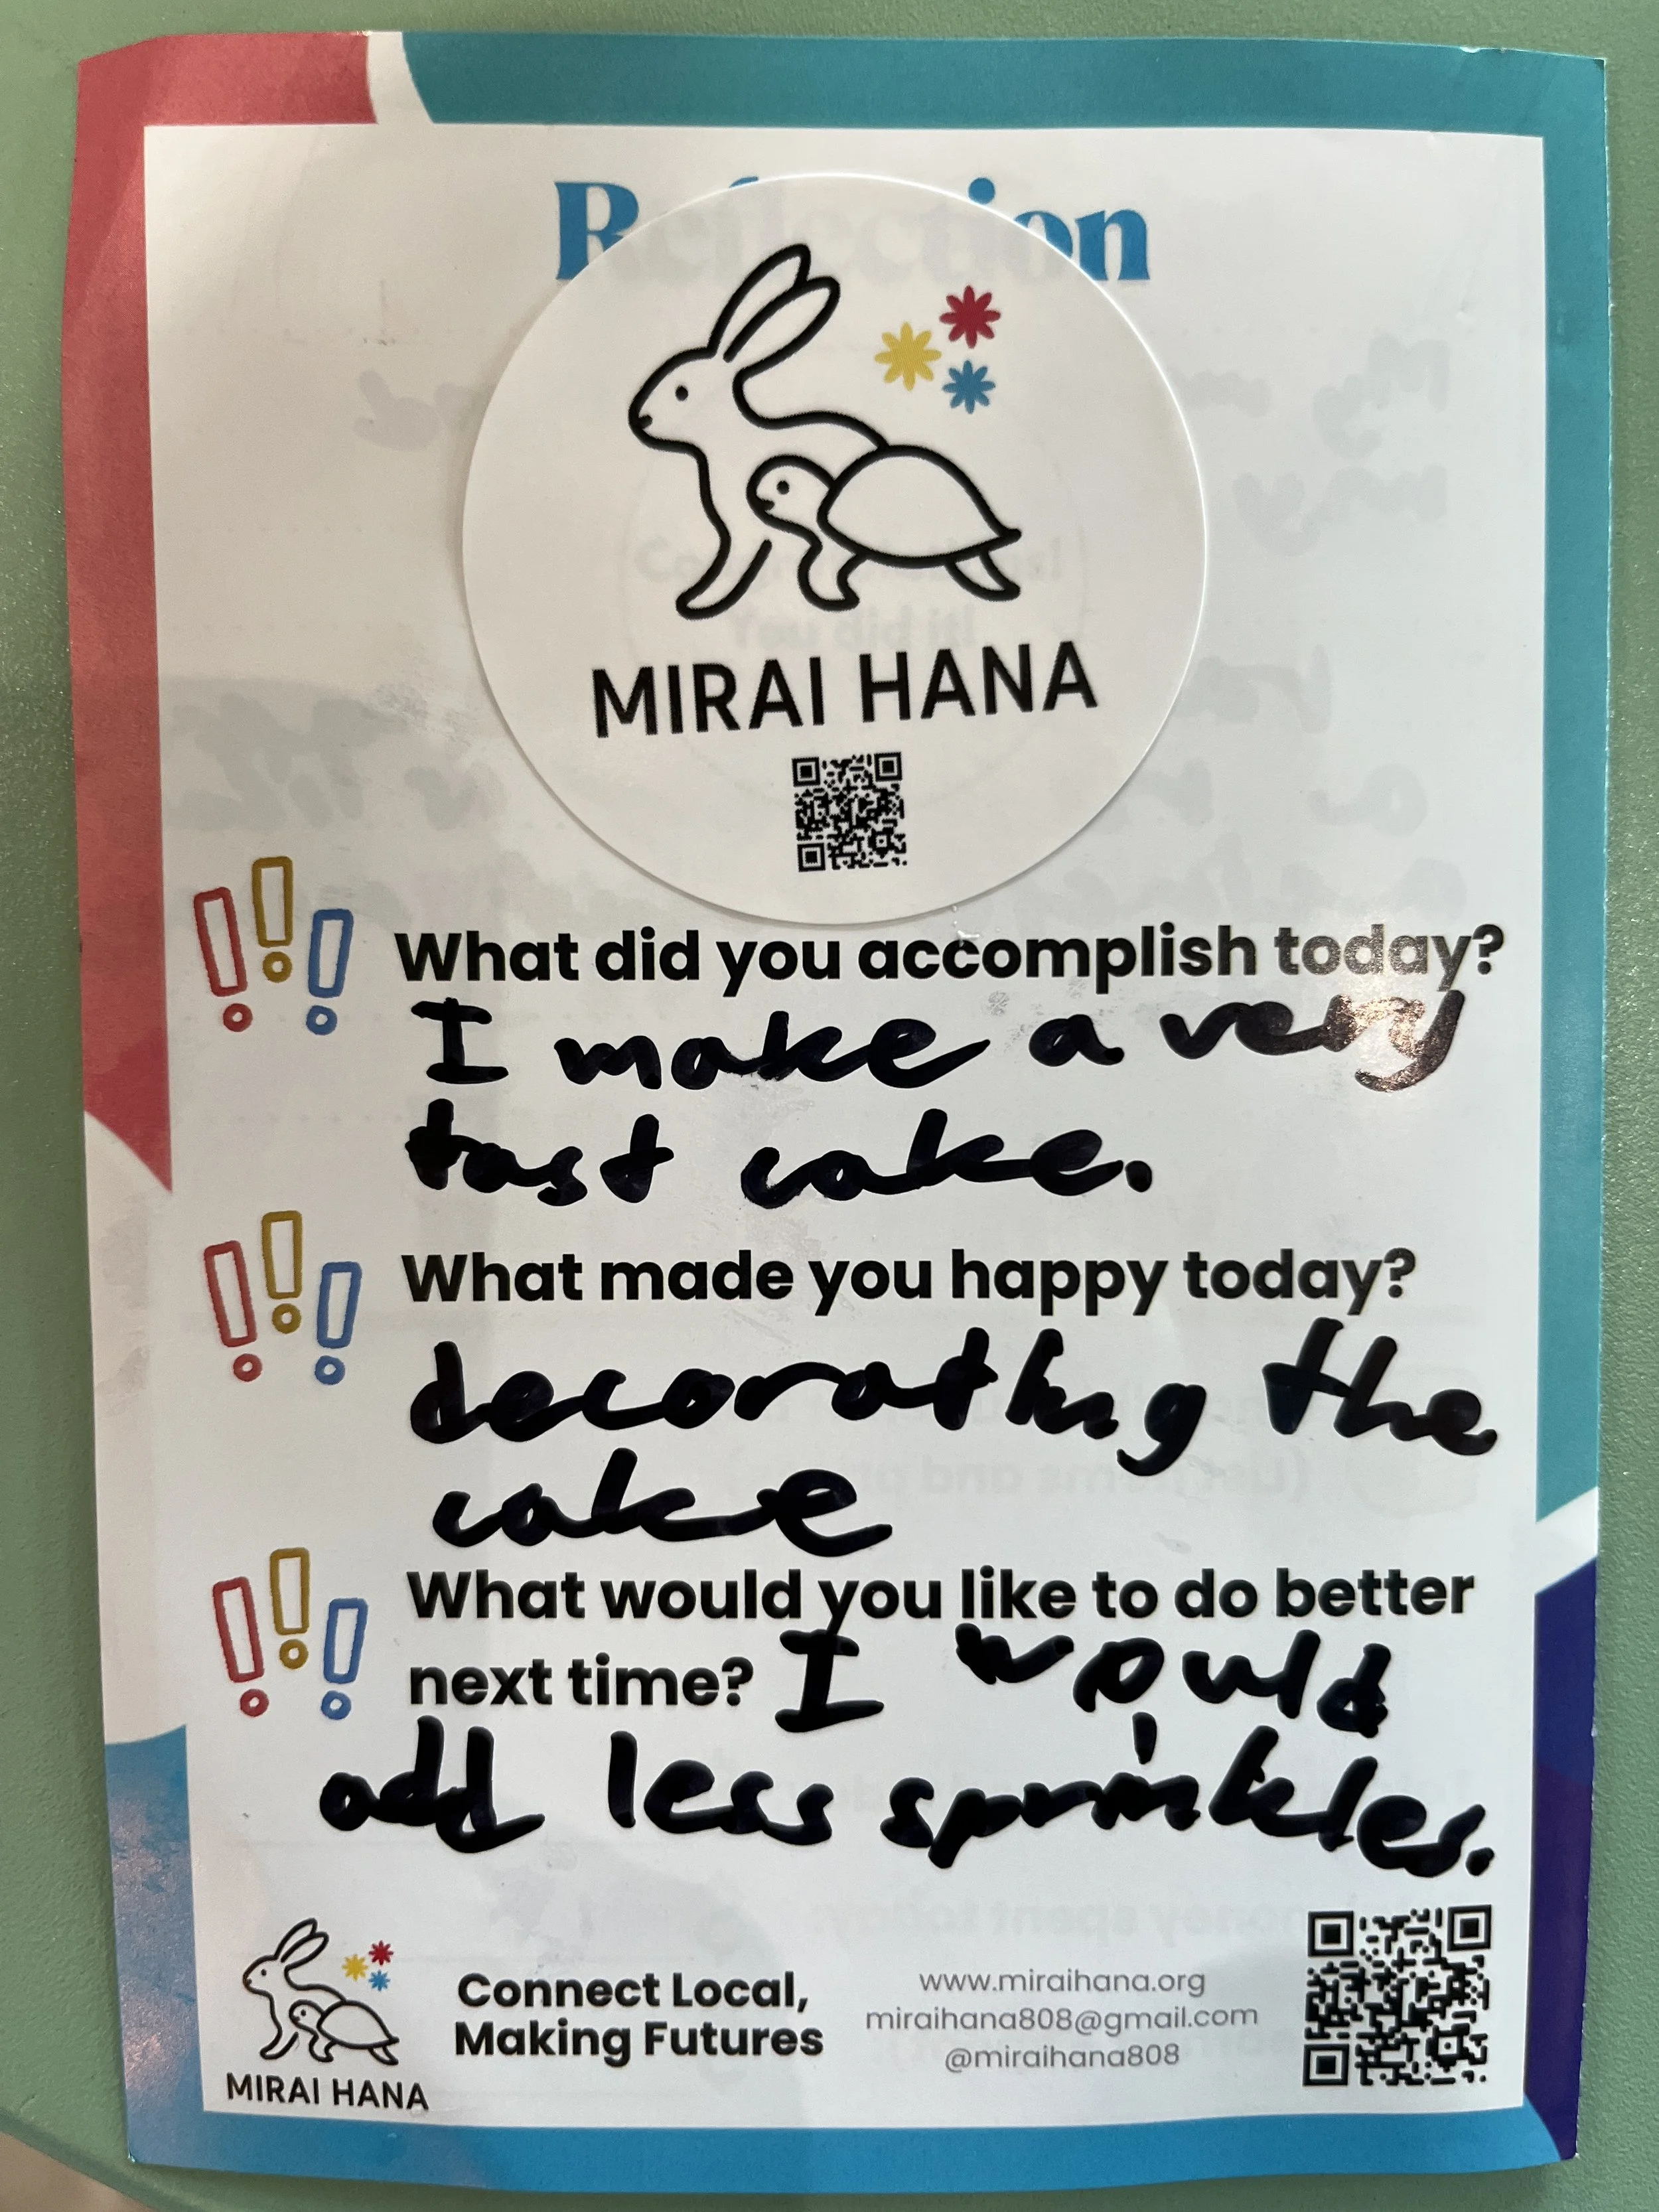 Reflection
MIRAI HANA
What did you accomplish today?
I make a very
tast cake.
What made you happy today?
decorating the
cake
What would you like to do better
next time? I would
add less sprinkles.
MIRAI HANA
Connect Local,
Making Futures
www.miraihana.org
miraihana808@gmail.com
@miraihana808